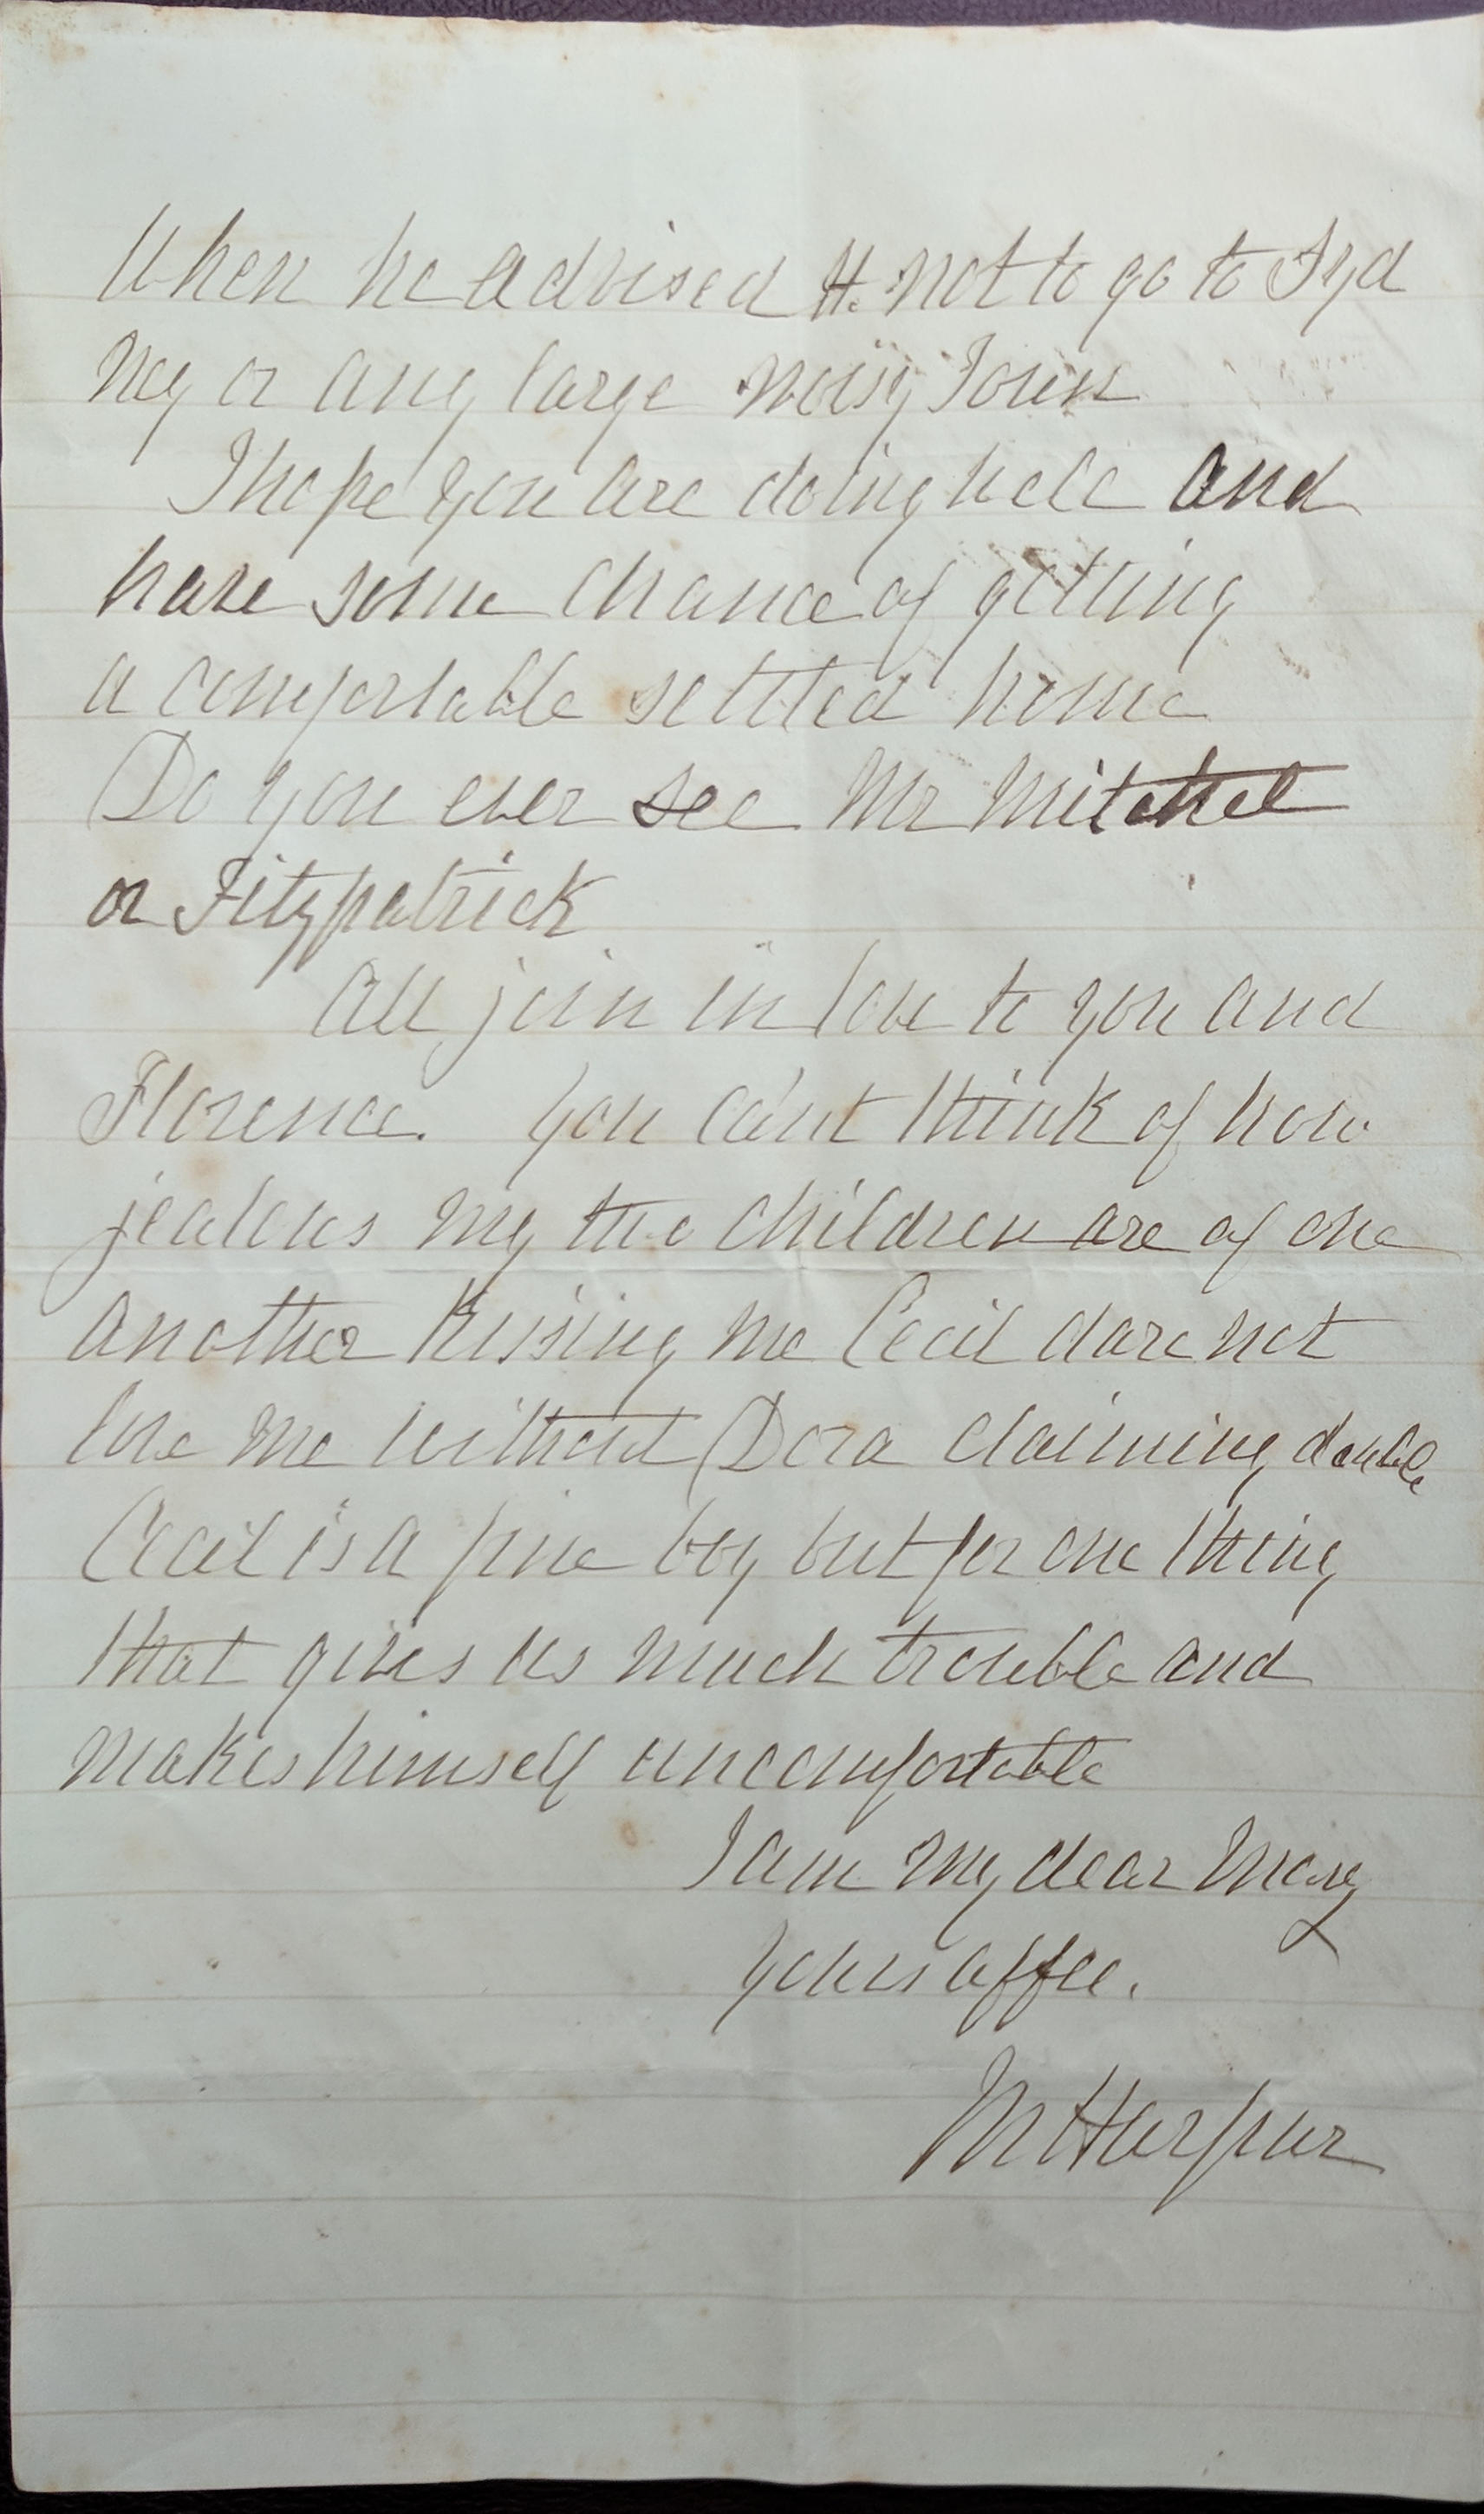 When he advised H. not to go to Syd
ney or any large noisy Town
I hope you are doing well and
have some chance of getting
a comfortable settled home
Do you ever see Mr Mitchel
or Fitzpatrick
All join in love to you and
Florence. You can't think of how
jealous my two children are of one
another kissing me Cecil dare not
love me without Dora claiming double
Cecil is a fine boy but for one thing
that gives us much trouble and
makes himself uncomfortable
I am my dear Mary
Yours affec.
M Harpur